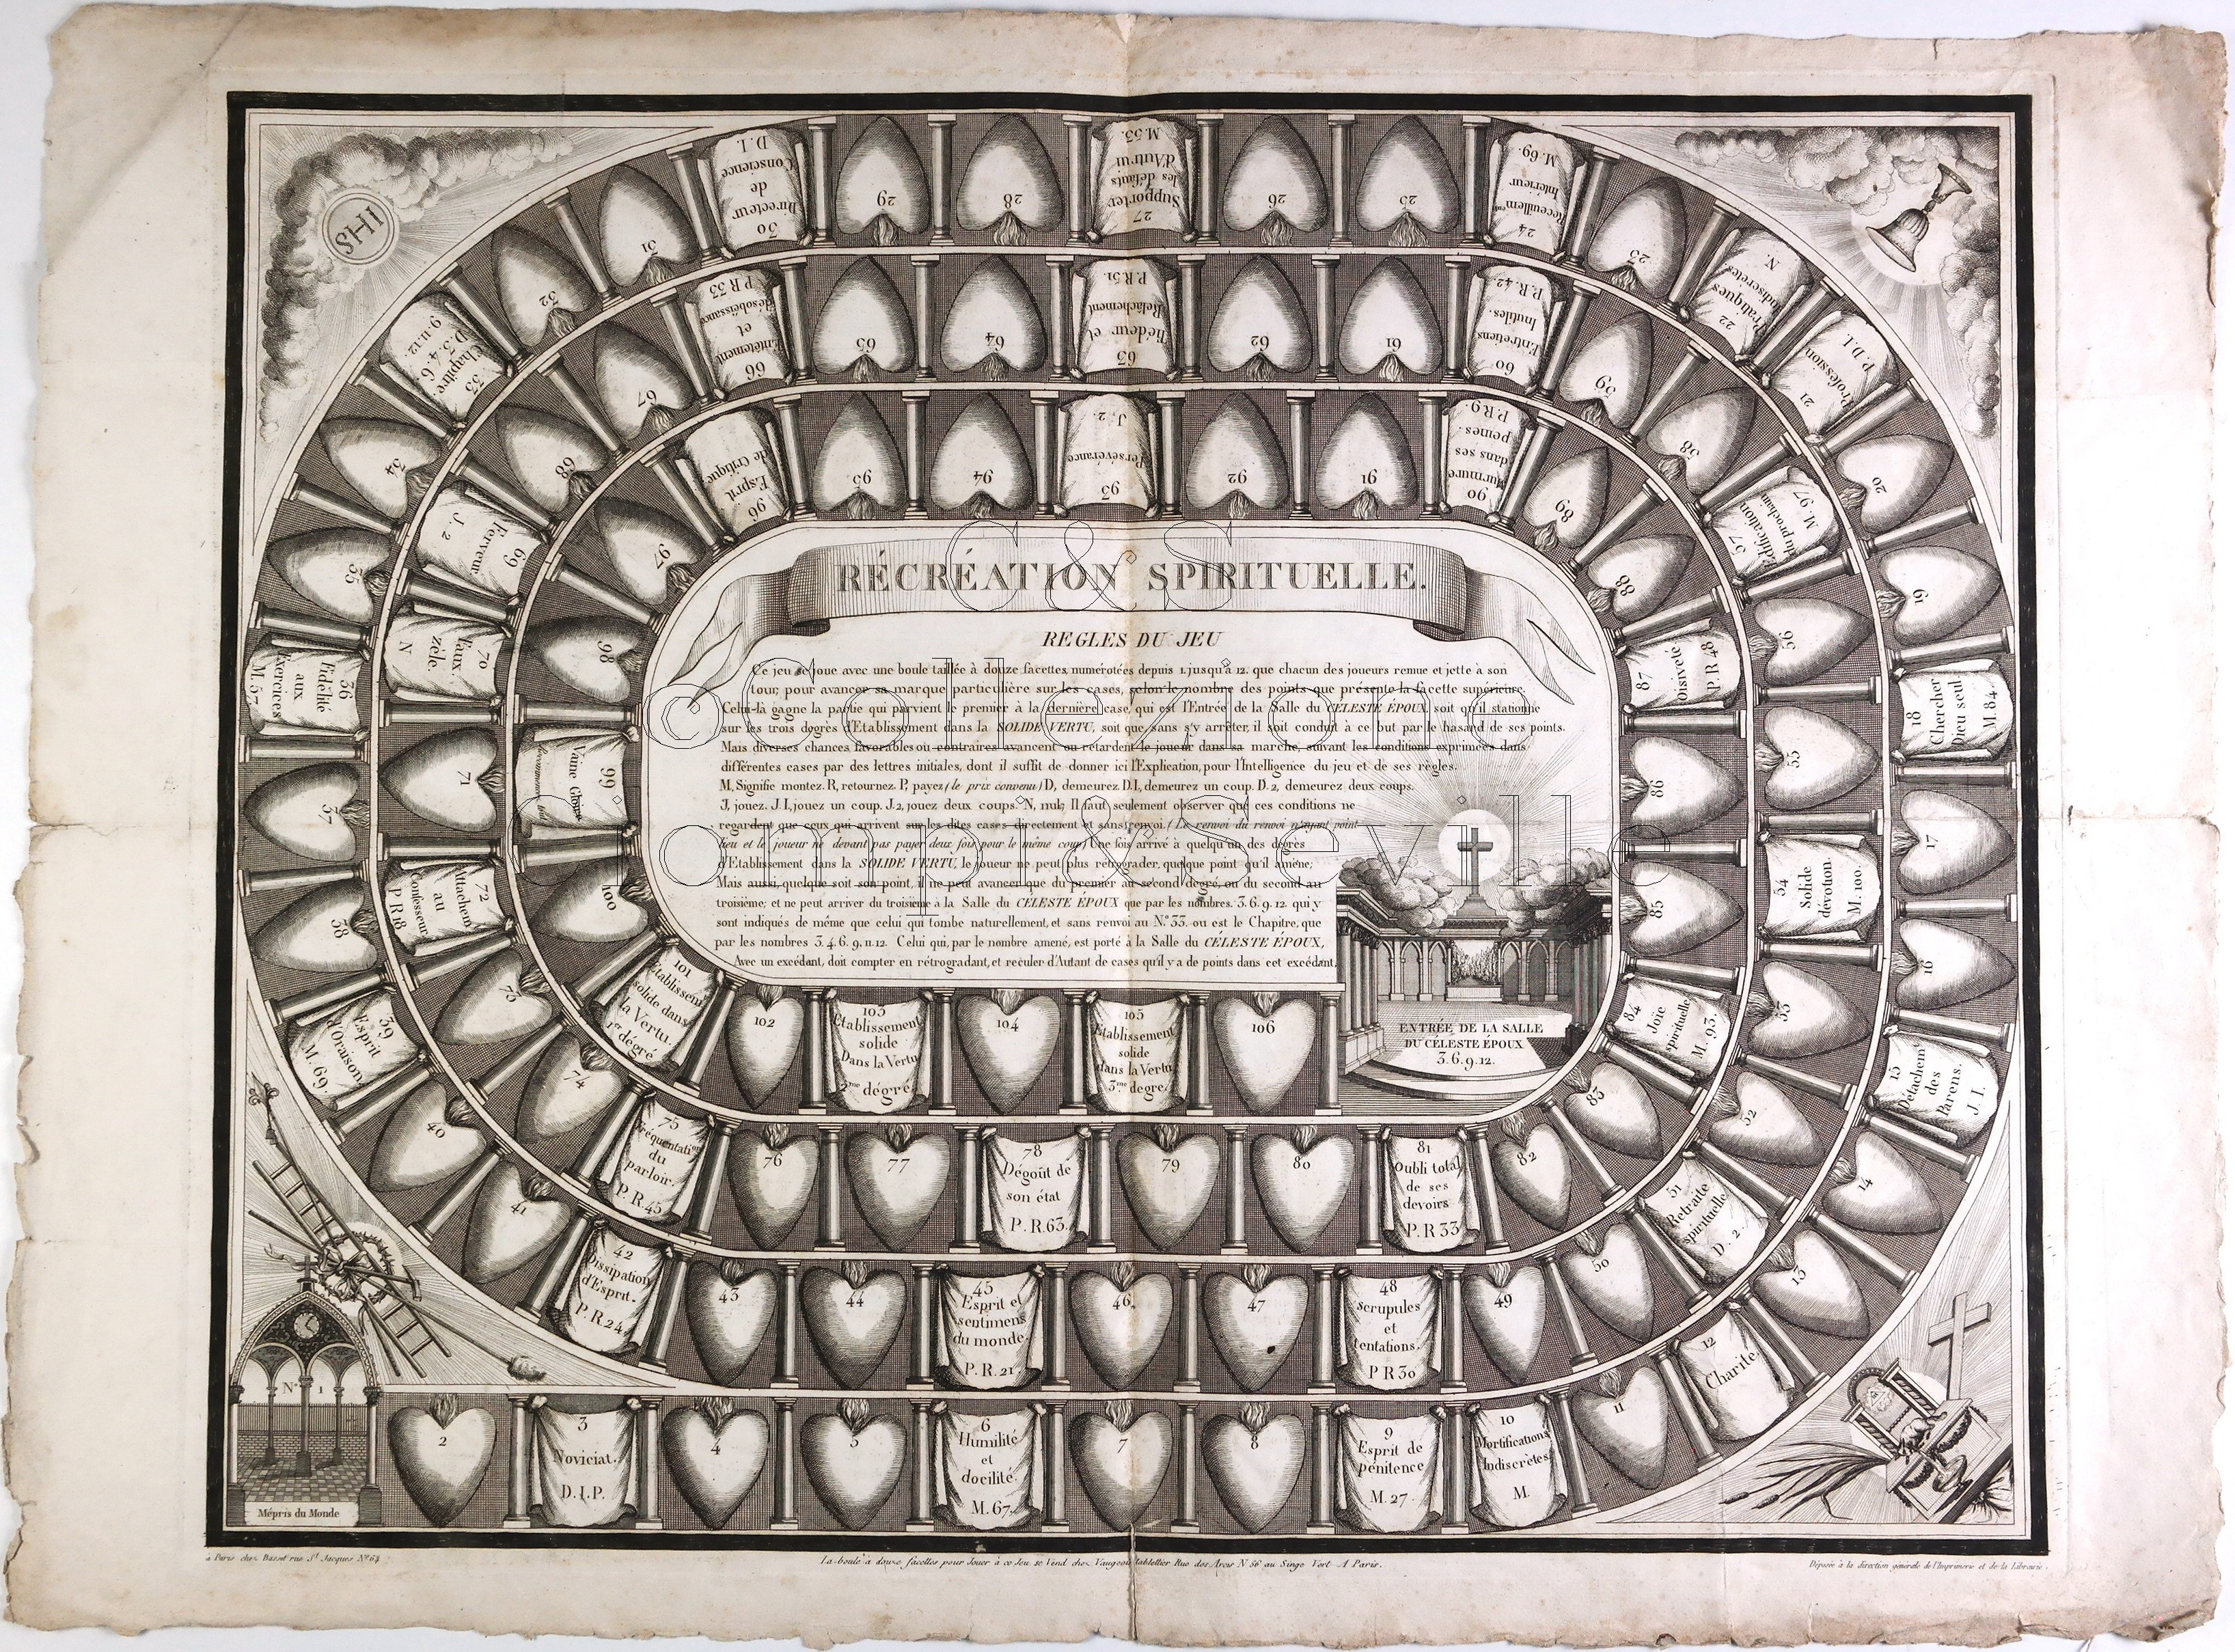 RÉCRÉATION SPIRITUELLE.
REGLES DU JEU
Ce jeu se joue avec une boule taillée à douze facettes numérotées depuis 1. jusqu'à 12. que chacun des joueurs remue et jette à son
tour, pour avancer sa marque particulière sur les cases, selon le nombre des points que présente la facette supérieure.
Celui-là gagne la partie qui parvient le premier à la dernière case, qui est l'Entrée de la Salle du CÉLESTE ÉPOUX, soit qu'il stationne
sur les trois dégrès d'Etablissement dans la SOLIDE VERTU, soit que sans s'y arrêter, il soit conduit à ce but par le hasard de ses points.
Mais diverses chances favorables ou contraires avancent ou retardent le joueur dans sa marche, suivant les conditions exprimées dans
différentes cases par des lettres initiales, dont il suffit de donner ici l'Explication, pour l'Intelligence du jeu et de ses règles.
M, Signifie montez. R, retournez. P, payez (le prix convenu) D, demeurez D.I, demeurez un coup. D.2, demeurez deux coups.
J, jouez. J.I, jouez un coup. J.2, jouez deux coups. N, nul; Il faut seulement observer que ces conditions ne
regardent que ceux qui arrivent sur les dites cases directement et sans renvoi. (Le renvoi du renvoi n'ayant point
lieu et le joueur ne devant pas payer deux fois pour le même coup) Une fois arrivé à quelqu'un des dégrés
d'Etablissement dans la SOLIDE VERTU, le joueur ne peut plus rétrograder, quelque point qu'il amène;
Mais aussi, quelque soit son point, il ne peut avancer que du premier au second dégré, ou du second au
troisième; et ne peut arriver du troisième à la Salle du CÉLESTE ÉPOUX que par les nombres. 3.6.9.12. qui y
sont indiqués de même que celui qui tombe naturellement, et sans renvoi au N.º 33. ou est le Chapitre, que
par les nombres 3.4.6.9.11.12. Celui qui, par le nombre amené, est porté à la Salle du CÉLESTE ÉPOUX,
Avec un excédant, doit compter en rétrogradant, et reculer d'Autant de cases qu'il y a de points dans cet excédant.
IHS
Nº 1
Mépris du Monde
2
3
Noviciat.
D.I.P.
4
5
6
Humilité
et
docilité.
M. 67.
7
8
9
Esprit de
pénitence
M. 27.
10
Mortifications
Indiscrètes.
M.
11
12
Charité.
13
14
15
Détachem.t
des
Parens.
J. I.
16
17
18
Chercher
Dieu seul.
M. 84.
19
20
21
Profession
P. D. I.
22
Pratiques
Indiscretes
N.
23
24
Receuillem.ent
Intérieur
M. 69.
25
26
27
Supporter
les défauts
d'Autrui
M. 53.
28
29
30
Directeur
de
Conscience
D. I.
31
32
33
Chapitre
D. 3. 4. 6.
9. 11. 12.
34
35
36
Fidélité
aux
Exercices
M. 57
37
38
39
Esprit
d'Oraison.
M. 69.
40
41
42
Dissipation
d'Esprit.
P. R 24.
43
44
45
Esprit et
sentimens
du monde.
P. R. 21
46.
47
48
scrupules
et
tentations.
P R 30
49
50
51
Retraite
spirituelle
D. 2.
52
53
54
Solide
dévotion.
M. 100.
55
56
57
Edification
du prochain
M. 97
58
59
60
Entretiens
Inutiles.
P. R. 42.
61
62
63
Tiédeur et
Relachement
P. R 51.
64
65
66
Entêtement
et
désobéissance
P R 33
67
68
69
Ferveur
J. 2
70
Faux
zèle.
N
71
72
Attachem.t
au
Confesseur.
P R 18
73
74
75
Fréquentation
du
parloir.
P. R 45
76
77
78
Dégoût de
son état
P. R 63.
79
80
81
Oubli total
de ses
devoirs
P. R 33
82
83
84
Joie
spirituelle
M. 93.
85
86
87
Oisiveté
P. R 48
88
89
90
Murmure
dans ses
peines.
P. R 9.
91
92
93
Persévérance
J. 2.
94
95
96
Esprit
de Critique
97
98
99
Vaine Gloire
100
101
Etablissem.t
solide dans
la Vertu.
1.er dégré
102
103
Etablissement
solide
Dans la Vertu
2.me dégré
104
105
Etablissement
solide
dans la Vertu
3.me degré.
106
ENTRÉE DE LA SALLE
DU CÉLESTE ÉPOUX
3. 6. 9. 12.
à Paris chez Basset rue S.t Jacques Nº 64
La boule à douze facettes pour Jouer à ce Jeu se Vend chez Vaugeois tablettier Rue des Arcis N 56 au Singe Vert A Paris.
Déposée à la direction générale de l'Imprimerie et de la Librairie.
C&S
©Collezione
Ciompi&Seville